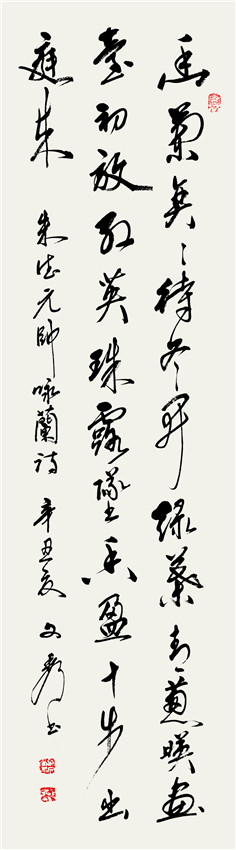 幽蘭奕々待冬開绿葉青葱暎畫
臺初放红英珠露墜香盈十步出
庭来
朱德元帥咏蘭詩 辛丑夏 文书